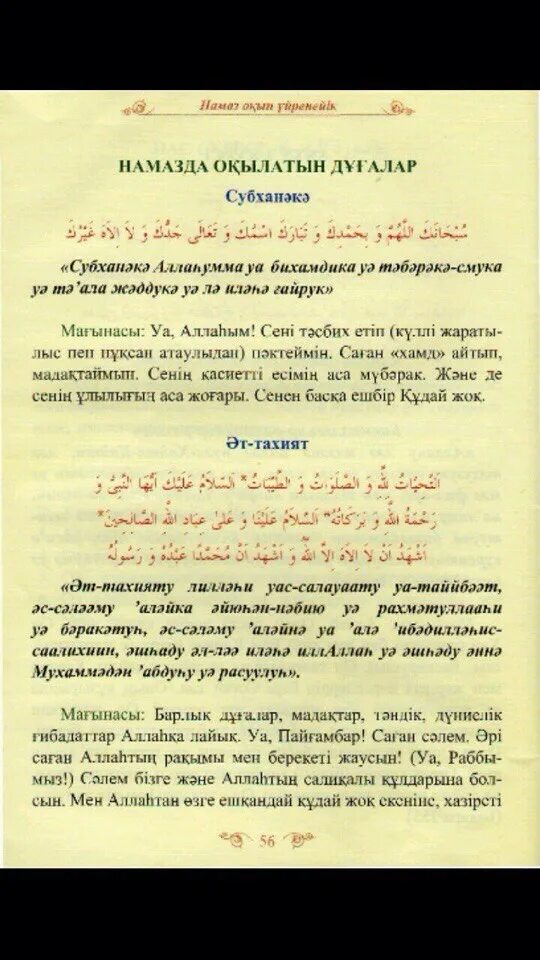 Намаз оқып үйренейік
НАМАЗДА ОҚЫЛАТЫН ДҰҒАЛАР
Субханәкә
سُبْحَانَكَ اللَّهُمَّ وَ بِحَمْدِكَ وَ تَبَارَكَ اسْمُكَ وَ تَعَالَى جَدُّكَ وَ لاَ اِلاَهَ غَيْرُكَ
«Субханәкә Аллаһумма уа бихамдика уә тәбәрәкә-смука
уә тә’ала жәддукә уә лә иләһә ғайрук»
Мағынасы: Уа, Аллаһым! Сені тәсбих етіп (күллі жараты-
лыс пен нұқсан атаулыдан) пәктеймін. Саған «хамд» айтып,
мадақтаймын. Сенің қасиетті есімің аса мүбәрак. Және де
сенің ұлылығың аса жоғары. Сенен басқа ешбір Құдай жоқ.
Әт-тахият
اَلتَّحِيَّاتُ لِلَّهِ وَ الصَّلَوَاتُ وَ الطَّيِّبَاتُ* اَلسَّلاَمُ عَلَيْكَ اَيُّهَا النَّبِىُّ وَ
رَحْمَةُ اللَّهِ وَ بَرَكَاتُهُ* اَلسَّلاَمُ عَلَيْنَا وَ عَلَى عِبَادِ اللَّهِ الصَّالِحِينَ*
اَشْهَدُ اَنْ لاَ اِلاَهَ اِلاَّ اللَّهُ وَ اَشْهَدُ اَنَّ مُحَمَّدًا عَبْدُهُ وَ رَسُولُهُ
«Әт-тахияту лилләһи уас-салауаату уа-таййбәәт,
әс-сәләәму ’аләйка әйюһән-нәбию уә рахмәтуллааһи
уә бәракәтуһ, әс-сәләму ’аләйнә уа ’алә ’ибәдилләһис-
саалихиин, әшһаду әл-ләә иләһә иллАллаһ уә әшһәду әннә
Мухаммәдән ’абдуһу уә расуулуһ».
Мағынасы: Барлық дұғалар, мадақтар, тәндік, дүниелік
ғибадаттар Аллаһқа лайық. Уа, Пайғамбар! Саған сәлем. Әрі
саған Аллаһтың рақымы мен берекеті жаусын! (Уа, Раббы-
мыз!) Сәлем бізге және Аллаһтың салиқалы құлдарына бол-
сын. Мен Аллаһтан өзге ешқандай құдай жоқ екеніне, хазіреті
56